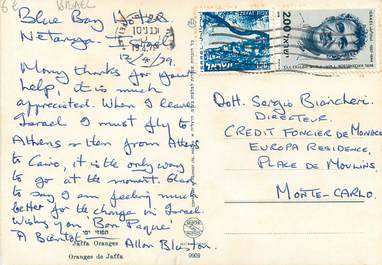 ISRAEL
Blue Bay HOTEL
Netanya.
12/4/79.
Many thanks for your
help, it is much
appreciated. When I leave
Israel I must fly to
Athens & then from Athens
to Cairo, it is the only way
to go at the moment. Glad
to say I am feeling much
better for the change in Israel.
Wishing you 'Bon Paque'
A Bientot
Allan Bluston.
Jaffa Oranges
תפוזי יפו
Oranges de Jaffa
9909
ISRAEL
ישראל
2.00
Dott. Sergio Biancheri
DIRECTEUR.
CREDIT FONCIER DE MONACO
EUROPA RESIDENCE,
PLACE DE MOULINS.
MONTE-CARLO.